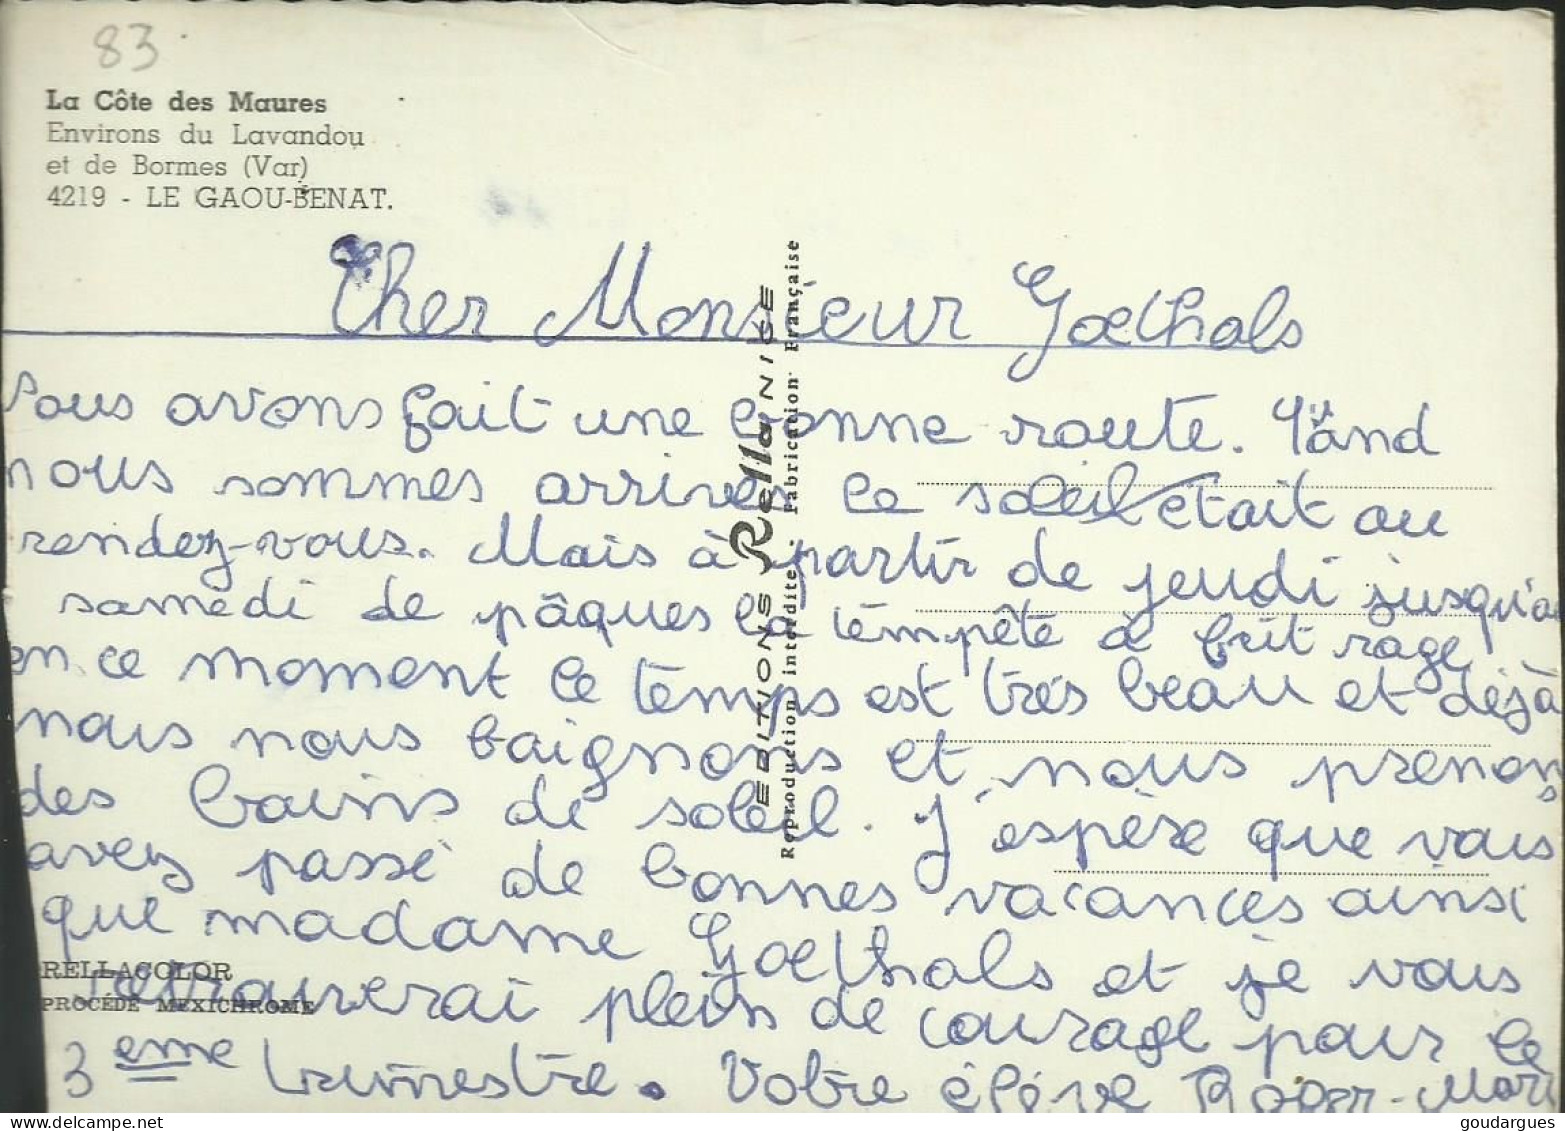 83
La Côte des Maures
Environs du Lavandou
et de Bormes (Var)
4219 - LE GAOU-BENAT.
Cher Monsieur Goethals
Nous avons fait une bonne route. Quand
nous sommes arrivés le soleil était au
rendez-vous. Mais à partir de jeudi jusqu'a
samedi de pâques la témpête à fait rage
en ce moment le temps est très beau et déjà
nous nous baignons et nous prenons
des bains de soleil. J'espère que vous
avez passé de bonnes vacances ainsi
que madame Goethals et je vous
retrouverai plein de courage pour le
3 eme trimestre. Votre élève Roger-Mari
EDITIONS Rella NICE
Reproduction interdite. Fabrication Française
RELLACOLOR
PROCÉDÉ MEXICHROME
goudargues